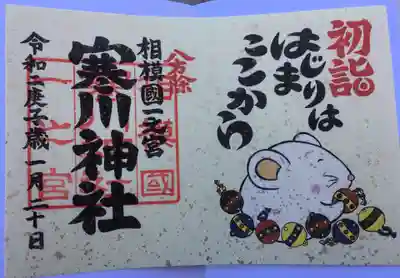 初詣
はじまりは
ここから
八方除
相模國一之宮
寒川神社
令和二庚子歳一月二十日